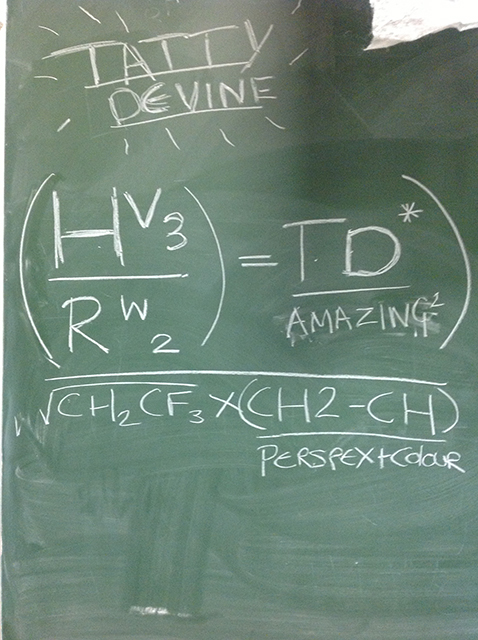 TATTY
DEVINE
(H^V_3 / R^W_2) = TD* / AMAZING²)
√CH₂CF₃ X (CH2-CH)
PERSPEX+Colour